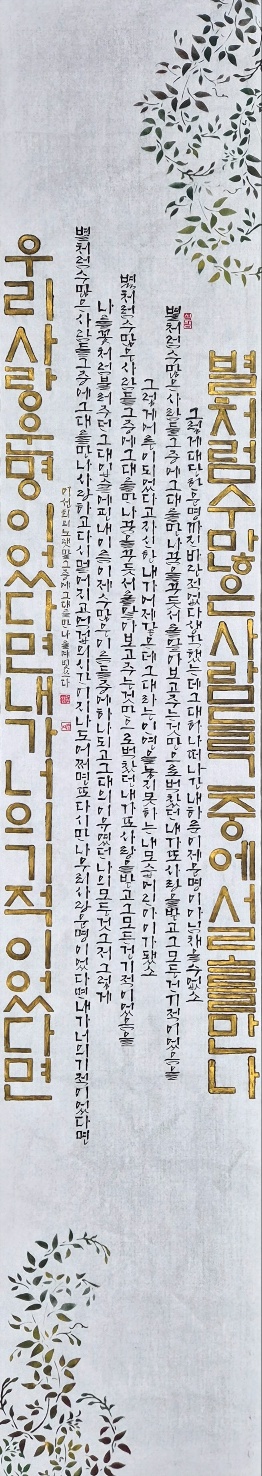 별처럼 수많은 사람들 그 중에 서로를 만나
그렇게 대단한 운명까진 바란 적 없다 생각했는데 그대 하나 떠나간 내 하룬 이제 운명이 아님 채울 수 없소
별처럼 수많은 사람들 그 중에 그대를 만나 꿈을 꾸듯 서롤 알아보고 주는 것만으로 벅찼던 내가 또 사랑을 받고 그 모든 건 기적이었음을
그렇게 어른이 되었다고 자신한 내가 어제 같은데 그대라는 인연을 놓지 못하는 내 모습 어린아이가 됐소
별처럼 수많은 사람들 그 중에 그대를 만나 꿈을 꾸듯 서롤 알아보고 주는 것만으로 벅찼던 내가 또 사랑을 받고 그 모든 건 기적이었음을
나를 꽃처럼 불러주던 그대 입술에 핀 내 이름 이제 수많은 이름들 그 중에 하나 되고 그대의 이유였던 나의 모든 것도 그저 그렇게
별처럼 수많은 사람들 그 중에 그대를 만나 사랑하고 다시 멀어지고 억겁의 시간이 지나도 어쩌면 또다시 만나 우리 사랑 운명이었다면 내가 너의 기적이었다면
이선희의 노랫말 그 중에 그대를 만나 쓰다
우리 사랑 운명이었다면 내가 너의 기적이었다면